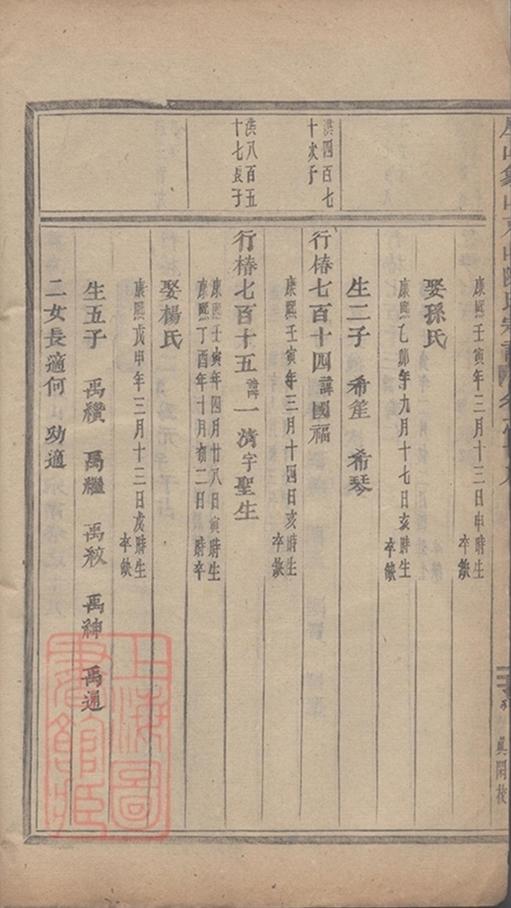 康熙壬寅年三月十三日申時生
卒缺
娶孫氏
康熙乙卯年九月十七日亥時生
卒缺
生二子 希笙 希琴
洪四百七
十次子
行椿七百十四諱國福
康熙壬寅年三月十四日亥時生
卒缺
洪八百五
十七長子
行椿七百十五諱一濟字聖生
康熙壬寅年四月廿八日寅時生
康熙丁酉年十月初二日 時卒
娶楊氏
康熙戊申年三月十三日戌時生
卒缺
生五子 禹纘 禹繼 禹 禹神 禹通
二女長適何 幼適
上海圖書館藏